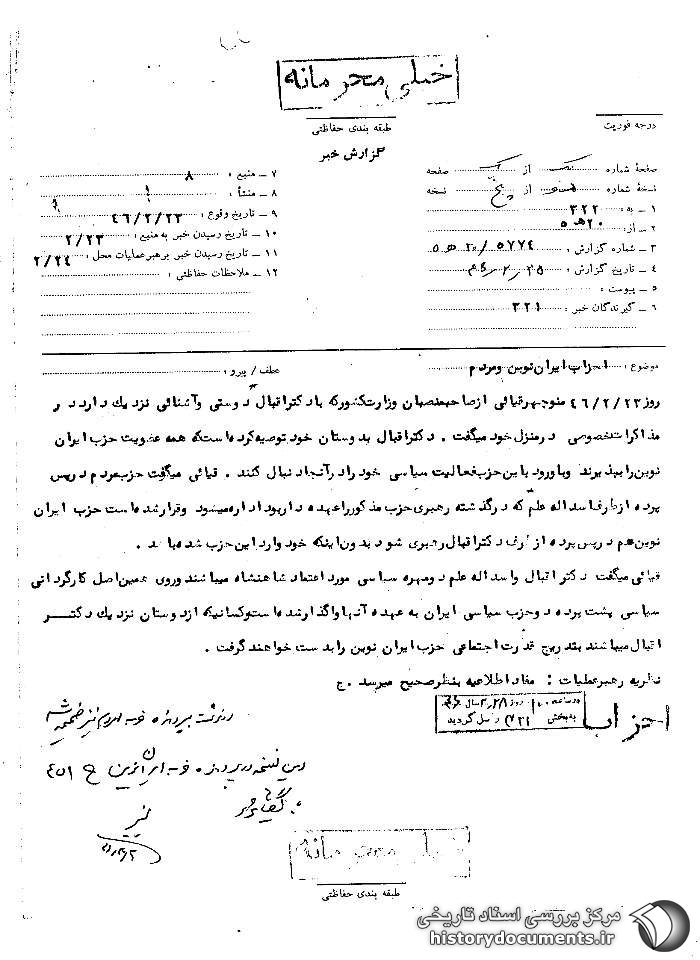 خیلی محرمانه
طبقه بندی حفاظتی
درجه فوریت
گزارش خبر
صفحهٔ شماره یک از یک صفحه
نسخهٔ شماره از پنج نسخه
۱ ـ به : ۳۲۲
۲ ـ از : ۲۰ هـ ۵
۳ ـ شماره گزارش : ۵۷۷۴ / ۲۰ هـ ۵
۴ ـ تاریخ گزارش :
۵ ـ پیوست :
۶ ـ گیرندگان خبر : ۳۲۱
۷ ـ منبع : ۸
۸ ـ منشأ :
۹ ـ تاریخ وقوع : ۴۶/۲/۲۳
۱۰ ـ تاریخ رسیدن خبر به منبع : ۲/۲۳
۱۱ ـ تاریخ رسیدن خبر برهبر عملیات محل : ۲/۲۴
۱۲ ـ ملاحظات حفاظتی :
موضوع : احزاب ایران نوین و مردم
عطف / پیرو :
روز ۴۶/۲/۲۳ منوچهر قیائی از صاحبمنصبان وزارت کشور که با دکتر اقبال دوستی و آشنائی نزدیك دارد در
مذاکرات خصوصی در منزل خود میگفت . دکتر اقبال بدوستان خود توصیه کرده است که همه عضویت حزب ایران
نوین را بپذیرند و با ورود باین حزب فعالیت سیاسی خود را در آنجا دنبال کنند . قیائی میگفت حزب مردم در پس
پرده از طرف اسداله علم که در گذشته رهبری حزب مذکور را عهده دار بود اداره میشود و قرار شده است حزب ایران
نوین هم در پس پرده از طرف دکتر اقبال رهبری شود بدون اینکه خود وارد این حزب شده باشد .
قیائی میگفت دکتر اقبال و اسداله علم دو مهره سیاسی مورد اعتماد شاهنشاه میباشند و روی همین اصل کارگردانی
سیاسی پشت پرده دو حزب سیاسی ایران به عهده آنها واگذار شده است و کسانیکه از دوستان نزدیك دکتر
اقبال میباشند بتدریج قدرت اجتماعی حزب ایران نوین را بدست خواهند گرفت .
نظریه رهبر عملیات : مفاد اطلاعیه بنظر صحیح میرسد . ج
احزاب
به بخش ۳۲۱ واصل گردید
خیلی محرمانه
طبقه بندی حفاظتی
مرکز بررسی اسناد تاریخی
historydocuments.ir